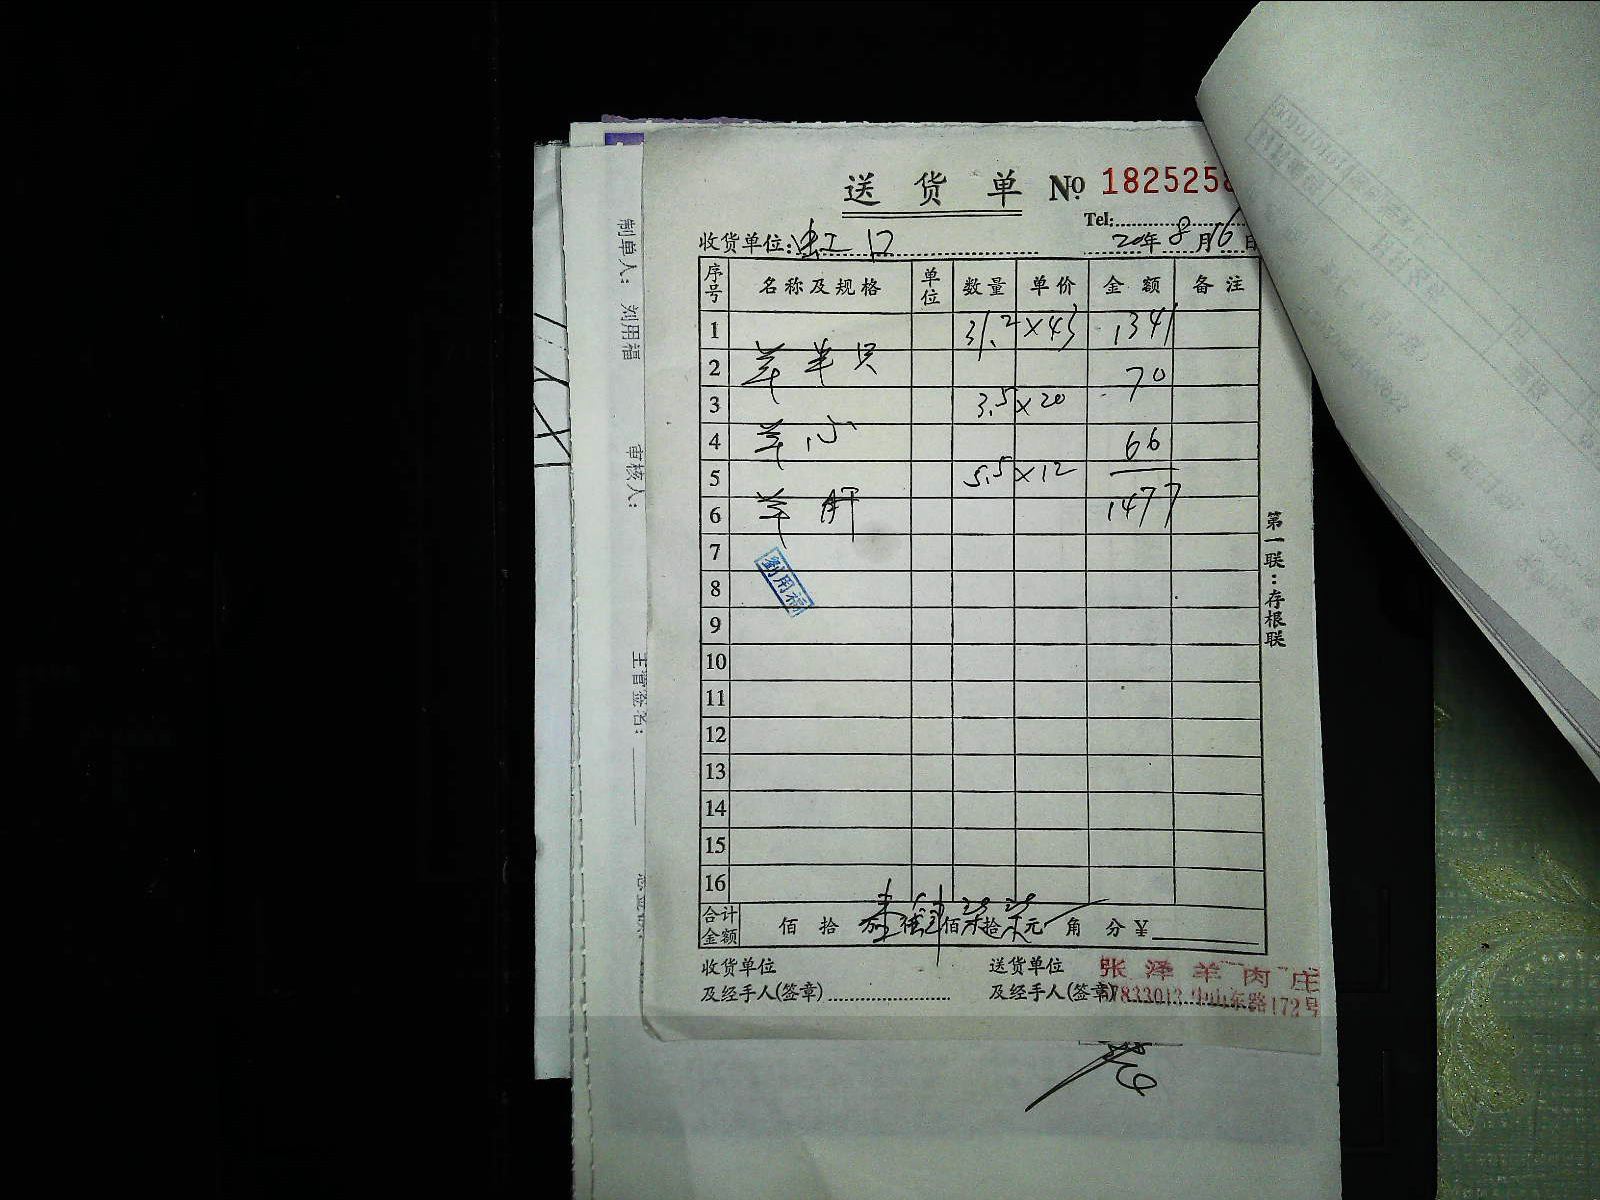 送货单 № 1825258
Tel:
收货单位:虹口 20年8月16日
序号 名称及规格 单位 数量 单价 金额 备注
1 31.2 ×43 1341
2 羊半只 70
3 3.5 ×20
4 羊心 66
5 5.5 ×12
6 羊肝 1477
7
刘用福
8
9
10
11
12
13
14
15
16
合计金额 佰 拾 万 壹仟 肆佰 柒拾 柒元 角 分 ¥
收货单位 送货单位 张泽羊肉庄
及经手人(签章) 及经手人(签章) 57833013 中山东路172号
第一联:存根联
制单人: 刘用福
审核人:
主管签名: